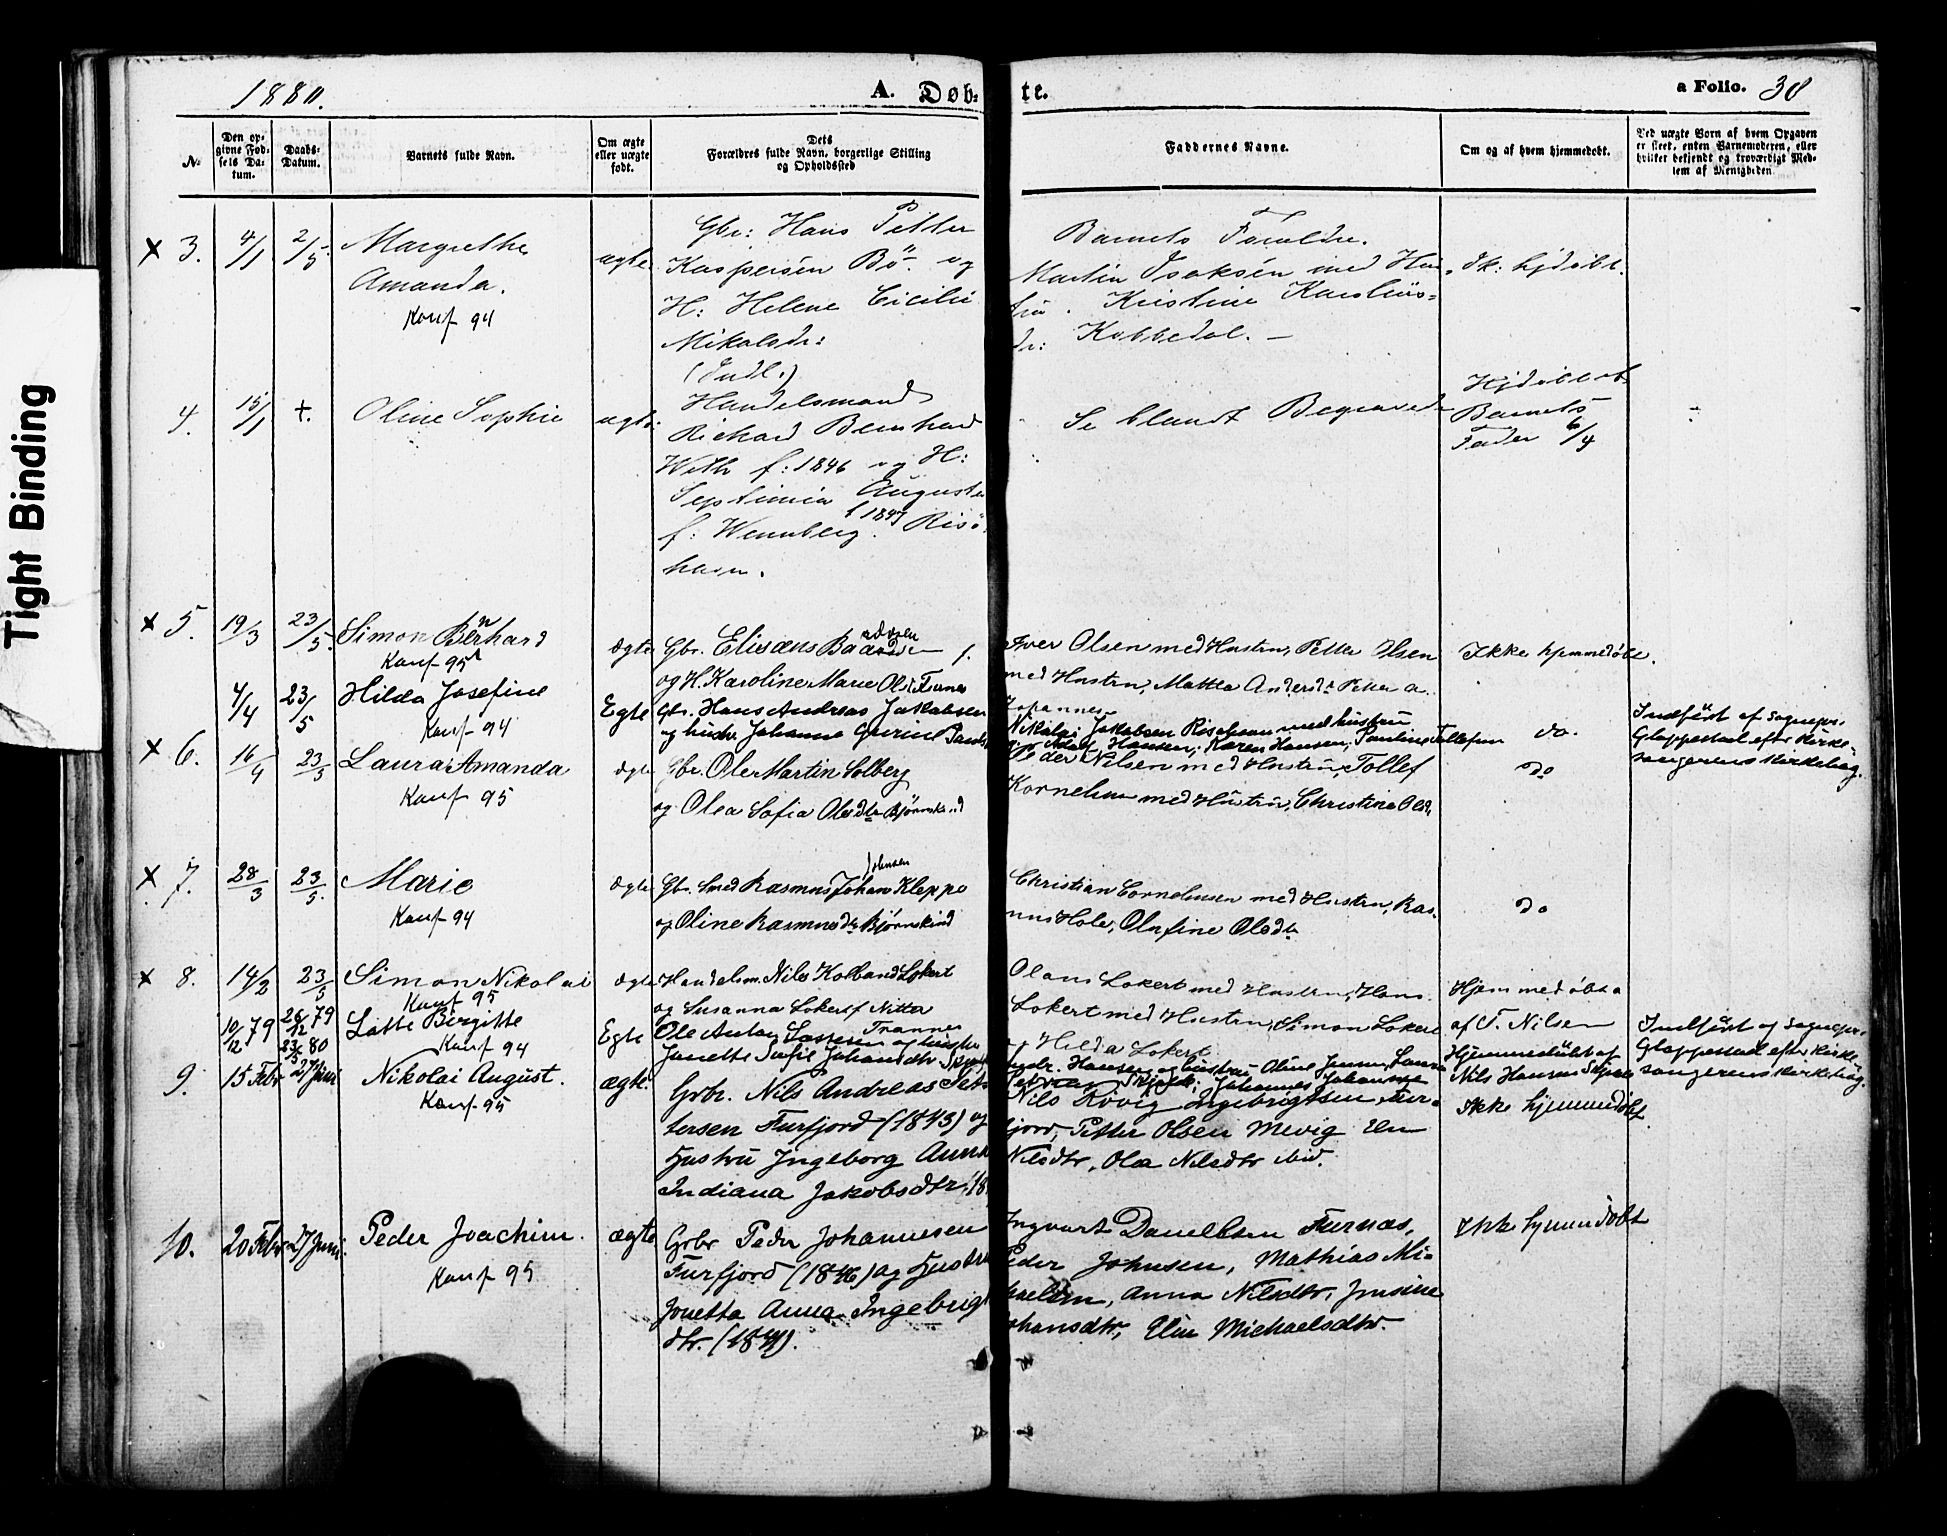 Tight Binding
1880.
A. Døb-
te.
a Folio. 38
No
Den op-
givne Fød-
sels Da-
tum.
Daabs-
Datum.
Barnets fulde Navn.
Om ægte
eller uægte
født.
Dets
Forældres fulde Navn, borgerlige Stilling
og Opholdssted
Faddernes Navne.
Om og af hvem hjemmedøbt.
Ved uægte Børn af hvem Opgaven
er skeet, enten Barnemoderen, eller
hvilket bekjendt og troværdigt Med-
lem af Menigheden
x 3. 4/1 2/5 Margrethe
Amanda.
Konf 94
ægte
Gbr: Hans Petter
Kaspersen Bö. og
H: Helene Cicilie
Mikalsdr:
(Indl.)
Barnets Foreldre.
Martin Isaksen med Hu-
stru. Kristine Karoliüs-
dr: Kobbedal. —
Ik: hjdöbt.
4. 15/1 +. Oline Sophie
ægte
Handelsmand
Richard Bernhard
With f: 1846 og H:
Septimia Augusta
f: Wennberg. f 1847 Risö-
havn.
Se blandt Begravede
Hjdöbt ab
Barnets
Fader 6/4
x 5. 19/3 23/5. Simon Bernhard
Konf 95
ægte
Gbr. Elisæus
og H. Karoline Marie Olsd Furnes
Iver Olsen med Hustru, Petter Olsen
med Hustru, Mattea Andersdr Peter a
Johannes
Ikke hjemmedöbt.
4/4 23/5 Hilda Josefine
Konf 94
Egte
Gbr. Hans Andreas Jakobsen
og hustr. Johanna Gurine
Nikolai Jakobsen Risøhavn med hustru
Adolf Hansen; Karen Hansen; Pauline Tollefsen
do.
Indført af Sognepr.
Gloppestad efter Kirke-
sangerens Kirkebog.
x 6. 16/4 23/5 Laura Amanda
Konf 95
ægte
Gbr. Ole Martin Solberg
og Olea Sofia Olesdtr Bjørnskind
Peder Nilsen med Hustru, Tollef
Kornelius med Hustru, Christine Olsdr
do
x 7. 28/3 23/5. Marie
Konf 94
ægte
Gbr. Smed Rasmus Johan Johnsen Kleppe
og Oline Rasmusdtr Bjørnskind
Christian Cornelinsen med Hustru, Ras-
mus Hole, Olufine Olsdtr
do
x 8. 14/2 23/5 Simon Nikolai
Konf 95
ægte
Handelsm. Nils Kolband Lokert
og Susanna Lokert f Nitter
Olans Lokert med Hustru, Hans
Lokert med Hustru, Simon Lokert
Hilda Lokert
Hjemmedöbt a
af T. Nilsen
10/12 79 26/12 79
23/5 80 Lotte Birgitte
Konf 94
Egte
Ole Anton Lassesen Trannes og hustru
Janette Sofie Johansdtr
Ingbr. Hansen og hustru Oline Jensen, Laura
Petrea Skjolde; Johannes Johansen
Hjemmedøbt af
Nils Hansen
Indført af Sognepr.
Gloppestad efter Kirke-
sangerens Kirkebog.
9. 15 Febr 27 Juni Nikolai August.
Konf 95
ægte.
Grbr. Nils Andreas Pet-
tersen Furfjord (1843) og
Hustru Ingeborg Anna
Indiana Jakobsdtr (18
Nils Rövig Ingebrigtsen Fur-
fjord, Petter Olsen Mevig Elen
Nilsdtr, Ola Nilsdtr ibid.
Ikke hjemmedøbt.
10. 20 Febr 27 Juni. Peder Joachim.
Konf 95
ægte
Grbr Peder Johannesen
Furfjord (1846) og Hustru
Jonetta Anna Ingebrigt
dtr. (1841).
Ingvart Danelbsen Furnæs,
Peder Johnsen, Mathias Mi-
kaelsen, Anna Nilsdtr, Jensine
Johansdtr, Elen Michaelsdtr.
Ikke hjemmedøbt